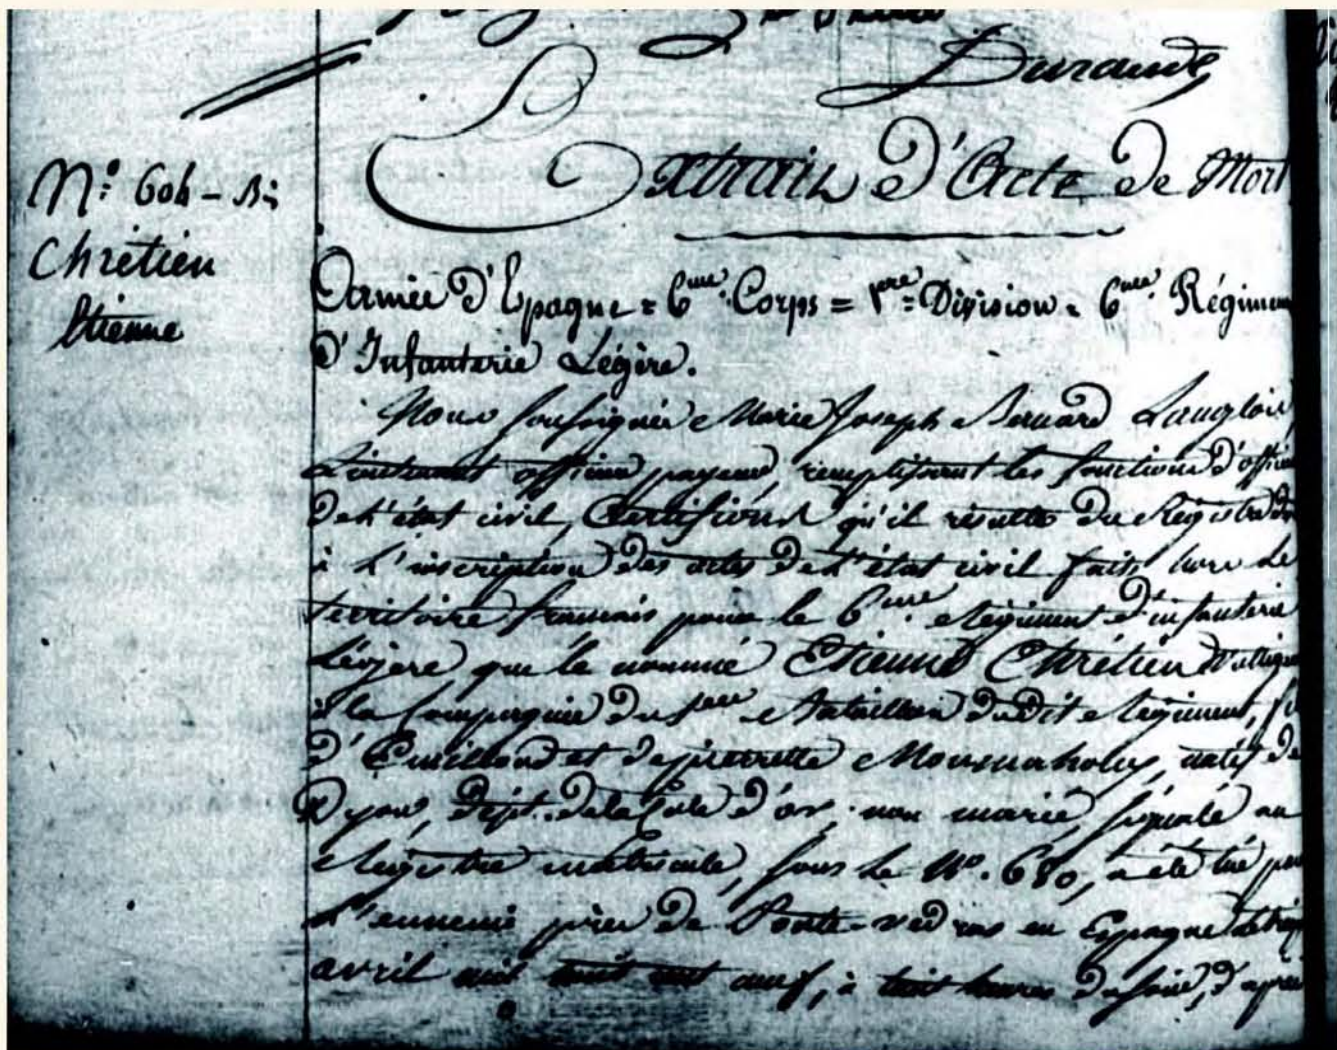 Durande
Extrait d'Acte de Mort
N.° 604 - Bis
Chrétien
Etienne
Armée d'Espagne = 6me Corps = 1ere Division = 6me Régimen
d'Infanterie Légère.
Nous soussigné Marie Joseph Bernard Langlois
Lieutenant officier payeur, remplissant les fonctions d'offici
de l'état civil, Certifions qu'il résulte du Registre
à l'inscription des actes de l'état civil faits hors le
territoire français pour le 6me Régiment d'infanterie
légere que le nommé Etienne Chrétien
à la Compagnie du 1er Bataillon dudit Régiment, fi
d'Emilland et de pierrette natif de
Dyon, Dépt. de la Cote d'or, non marié, signalé au
Registre matricule, sous le N°. 680, a été tué par
l'ennemi près de Ponte-vedras en Espagne le
avril mil huit cent neuf, à huit heures du soir, d'après